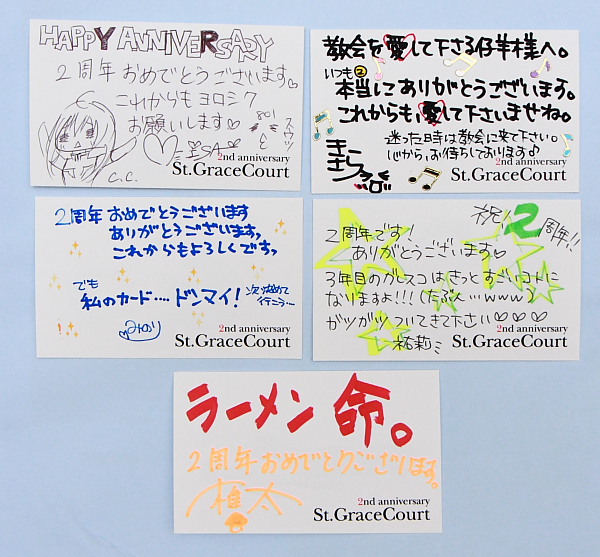 HAPPY ANNIVERSARY
2周年おめでとうございます♡
これからもヨロシク
お願いします♡
801
と
スウツ
C.C.
2nd anniversary
St.GraceCourt
教会を愛して下さる仔羊様へ。
いつも②
本当にありがとうございます。
これからも、愛して下さいませね。
迷った日時は教会に来て下さい。
心から、お待ちしております♪
きさら
2nd anniversary
St.GraceCourt
2周年おめでとうございます
ありがとうございますっ
これからもよろしくですっ
でも
私のカード‥‥ドンマイ!
次は改めて
行こう…
みのり
2nd anniversary
St.GraceCourt
祝!2周年!!
2周年です!
ありがとうございます♡
3年目のグレスコはきっとすごいコトに
なりますよ!!!(たぶん…www)
ガツガツついてきて下さい♡♡♡
祐莉
2nd anniversary
St.GraceCourt
ラーメン命。
2周年おめでとうございます。
植太
2nd anniversary
St.GraceCourt